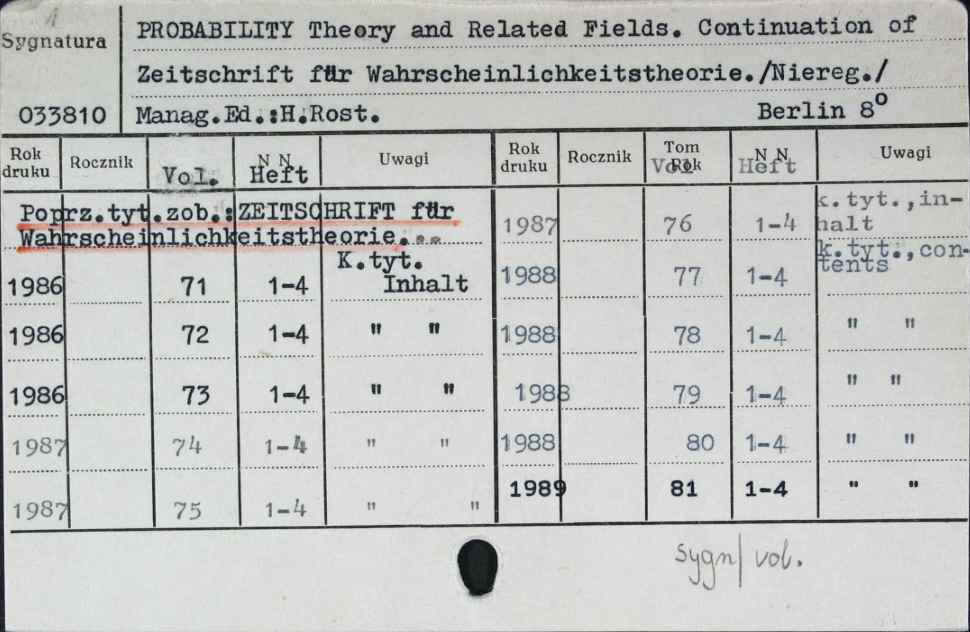 Sygnatura
PROBABILITY Theory and Related Fields. Continuation of
Zeitschrift für Wahrscheinlichkeitstheorie./Niereg./
033810 Manag.Ed.:H.Rost. Berlin 8⁰
Rok druku Rocznik Vol. N N Heft Uwagi Rok druku Rocznik Tom Rok Vol. N N Heft Uwagi
Poprz.tyt.zob.:ZEITSCHRIFT für
Wahrscheinlichkeitstheorie...
K.tyt.
1986 71 1-4 Inhalt
1986 72 1-4 " "
1986 73 1-4 " "
1987 74 1-4 " "
1987 75 1-4 " "
1987 76 1-4 k.tyt.,in-
halt
1988 77 1-4 k.tyt.,con-
tents
1988 78 1-4 " "
1988 79 1-4 " "
1988 80 1-4 " "
1989 81 1-4 " "
sygn/ vol.